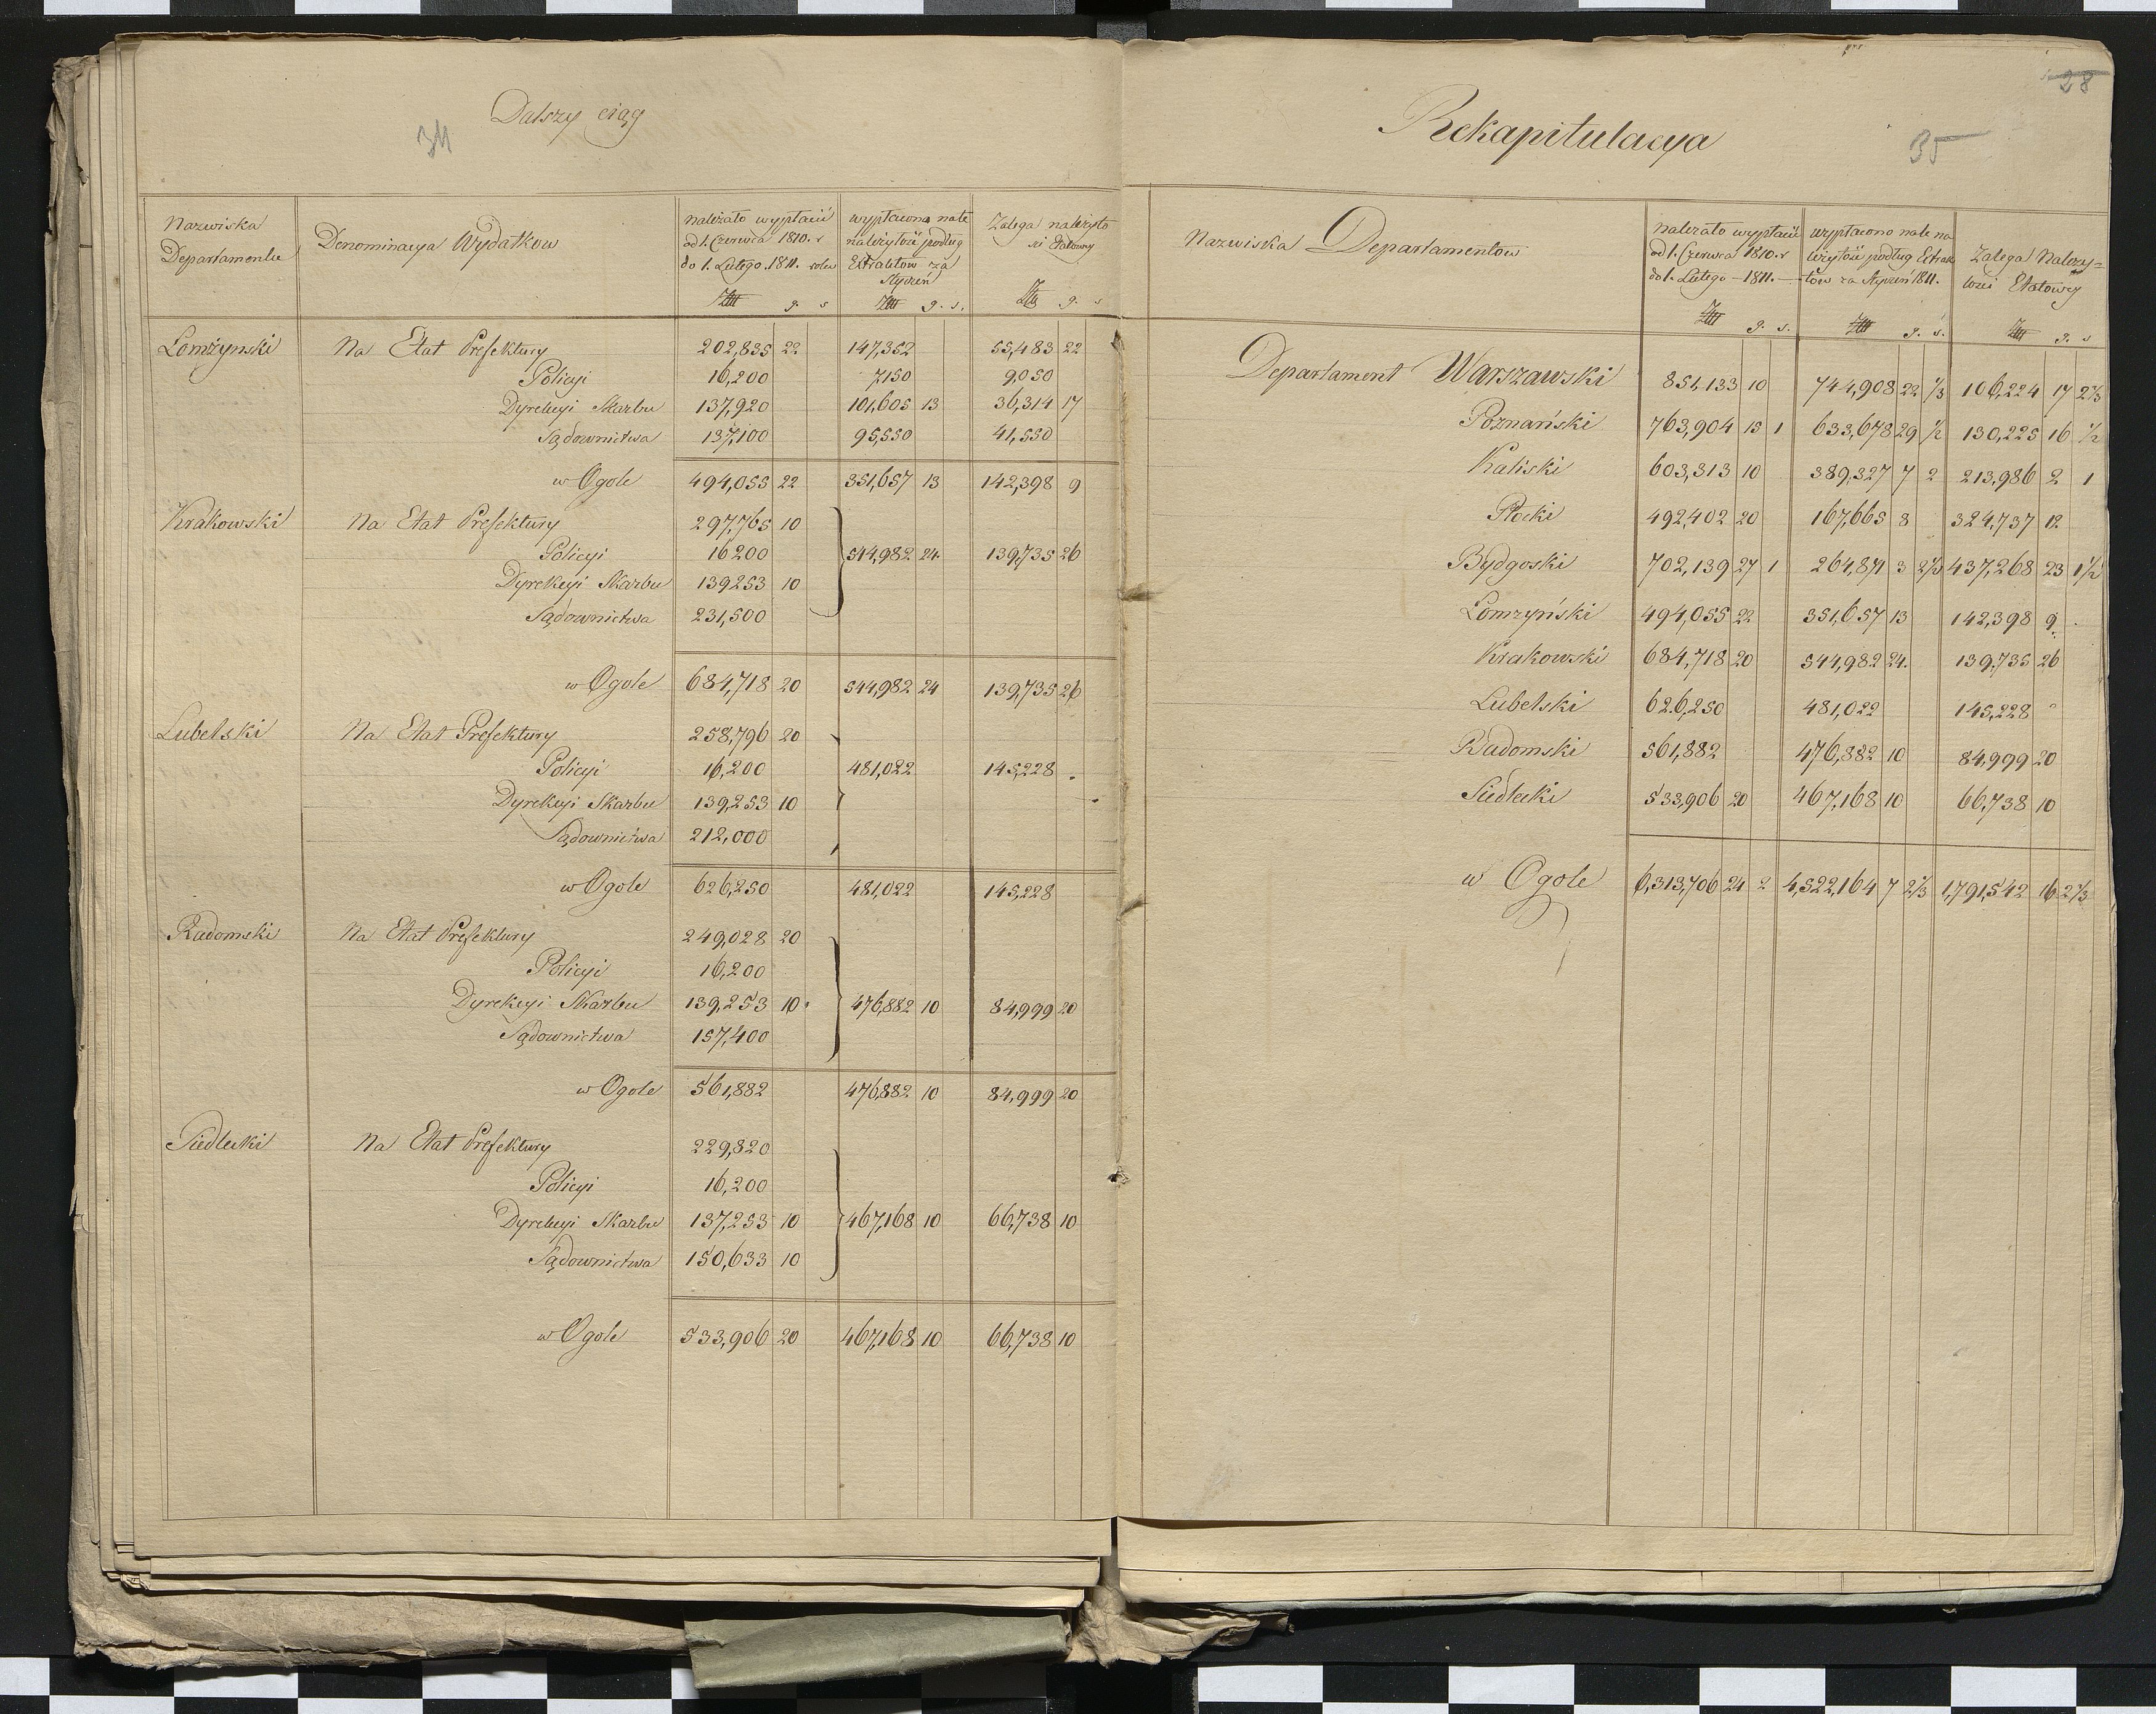 Dalszy ciąg
34
Nazwiska Departamentu | Denominacya Wydatkow | należało wypłacić od 1. Czerwca 1810. r do 1. Lutego. 1811. roku | wypłacono na te należytość podług Extraktów za Styczeń | Zalega należyto ści Etatowey
g. s | g. s. | g. s
Lomżynski Na Etat Prefektury 202,835 22 147,352 55,483 22
Policyi 16,200 7,150 9,050
Dyrekcyi Skarbu 137,920 101,605 13 36,314 17
Sądownictwa 137,100 95,550 41,550
w Ogole 494,055 22 351,657 13 142,398 9
Krakowski Na Etat Prefektury 297,765 10
Policyi 16 200 544,982 24 139,735 26
Dyrekcyi Skarbu 139253 10
Sądownictwa 231,500
w Ogole 684,718 20 544,982 24 139,735 26
Lubelski Na Etat Prefektury 258,796 20
Policyi 16,200 481,022 145,228
Dyrekcyi Skarbu 139,253 10
Sądownictwa 212,000
w Ogole 626,250 481,022 145,228
Radomski Na Etat Prefektury 249,028 20
Policyi 16,200
Dyrekcyi Skarbu 139,253 10 476,882 10 84,999 20
Sądownictwa 157,400
w Ogole 561,882 476,882 10 84,999 20
Siedlecki Na Etat Prefektury 229,820
Policyi 16,200
Dyrekcyi Skarbu 137,253 10 467,168 10 66,738 10
Sądownictwa 150,633 10
w Ogole 533,906 20 467,168 10 66,738 10
28
Rekapitulacya
35
Nazwiska Departamentow | należało wypłacić od 1. Czerwca 1810. r do 1. Lutego - 1811. | wypłacono na te na leżytość podług Extrak tów za Styczeń 1811. | Zalega Należy= tości Etatowey
g. s. | g. s. | g. s
Departament Warszawski 851,133 10 744,908 22 1/3 106,224 17 2 2/3
Poznański 763,904 15 1 633,678 29 1/2 130,225 16 1/2
Kaliski 603,313 10 389,327 7 2 213,986 2 1
Płocki 492,402 20 167,665 8 324,737 12
Bydgoski 702,139 27 1 264,871 3 2 1/2 437,268 23 1 1/2
Lomzyński 494,055 22 351,657 13 142,398 9
Krakowski 684,718 20 544,982 24. 139,735 26
Lubelski 626,250 481,022 145,228
Radomski 561,882 476,882 10 84,999 20
Siedlecki 533,906 20 467,168 10 66,738 10
w Ogole 6,313,706 24 2 4,522,164 7 2 1/3 1,791,542 16 2 2/3